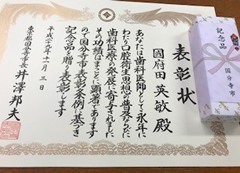 表彰状
國府田 英敏 殿
あなたは歯科医師として永年に
わたり口腔衛生思想の普及ならびに
歯科医療の発展に寄与されました
その功績はまことに顕著であります
よって国分寺市表彰条例に基づき
記念品を贈り表彰します
平成二十九年十一月三日
東京都国分寺市長 井澤邦夫
記念品
国分寺市